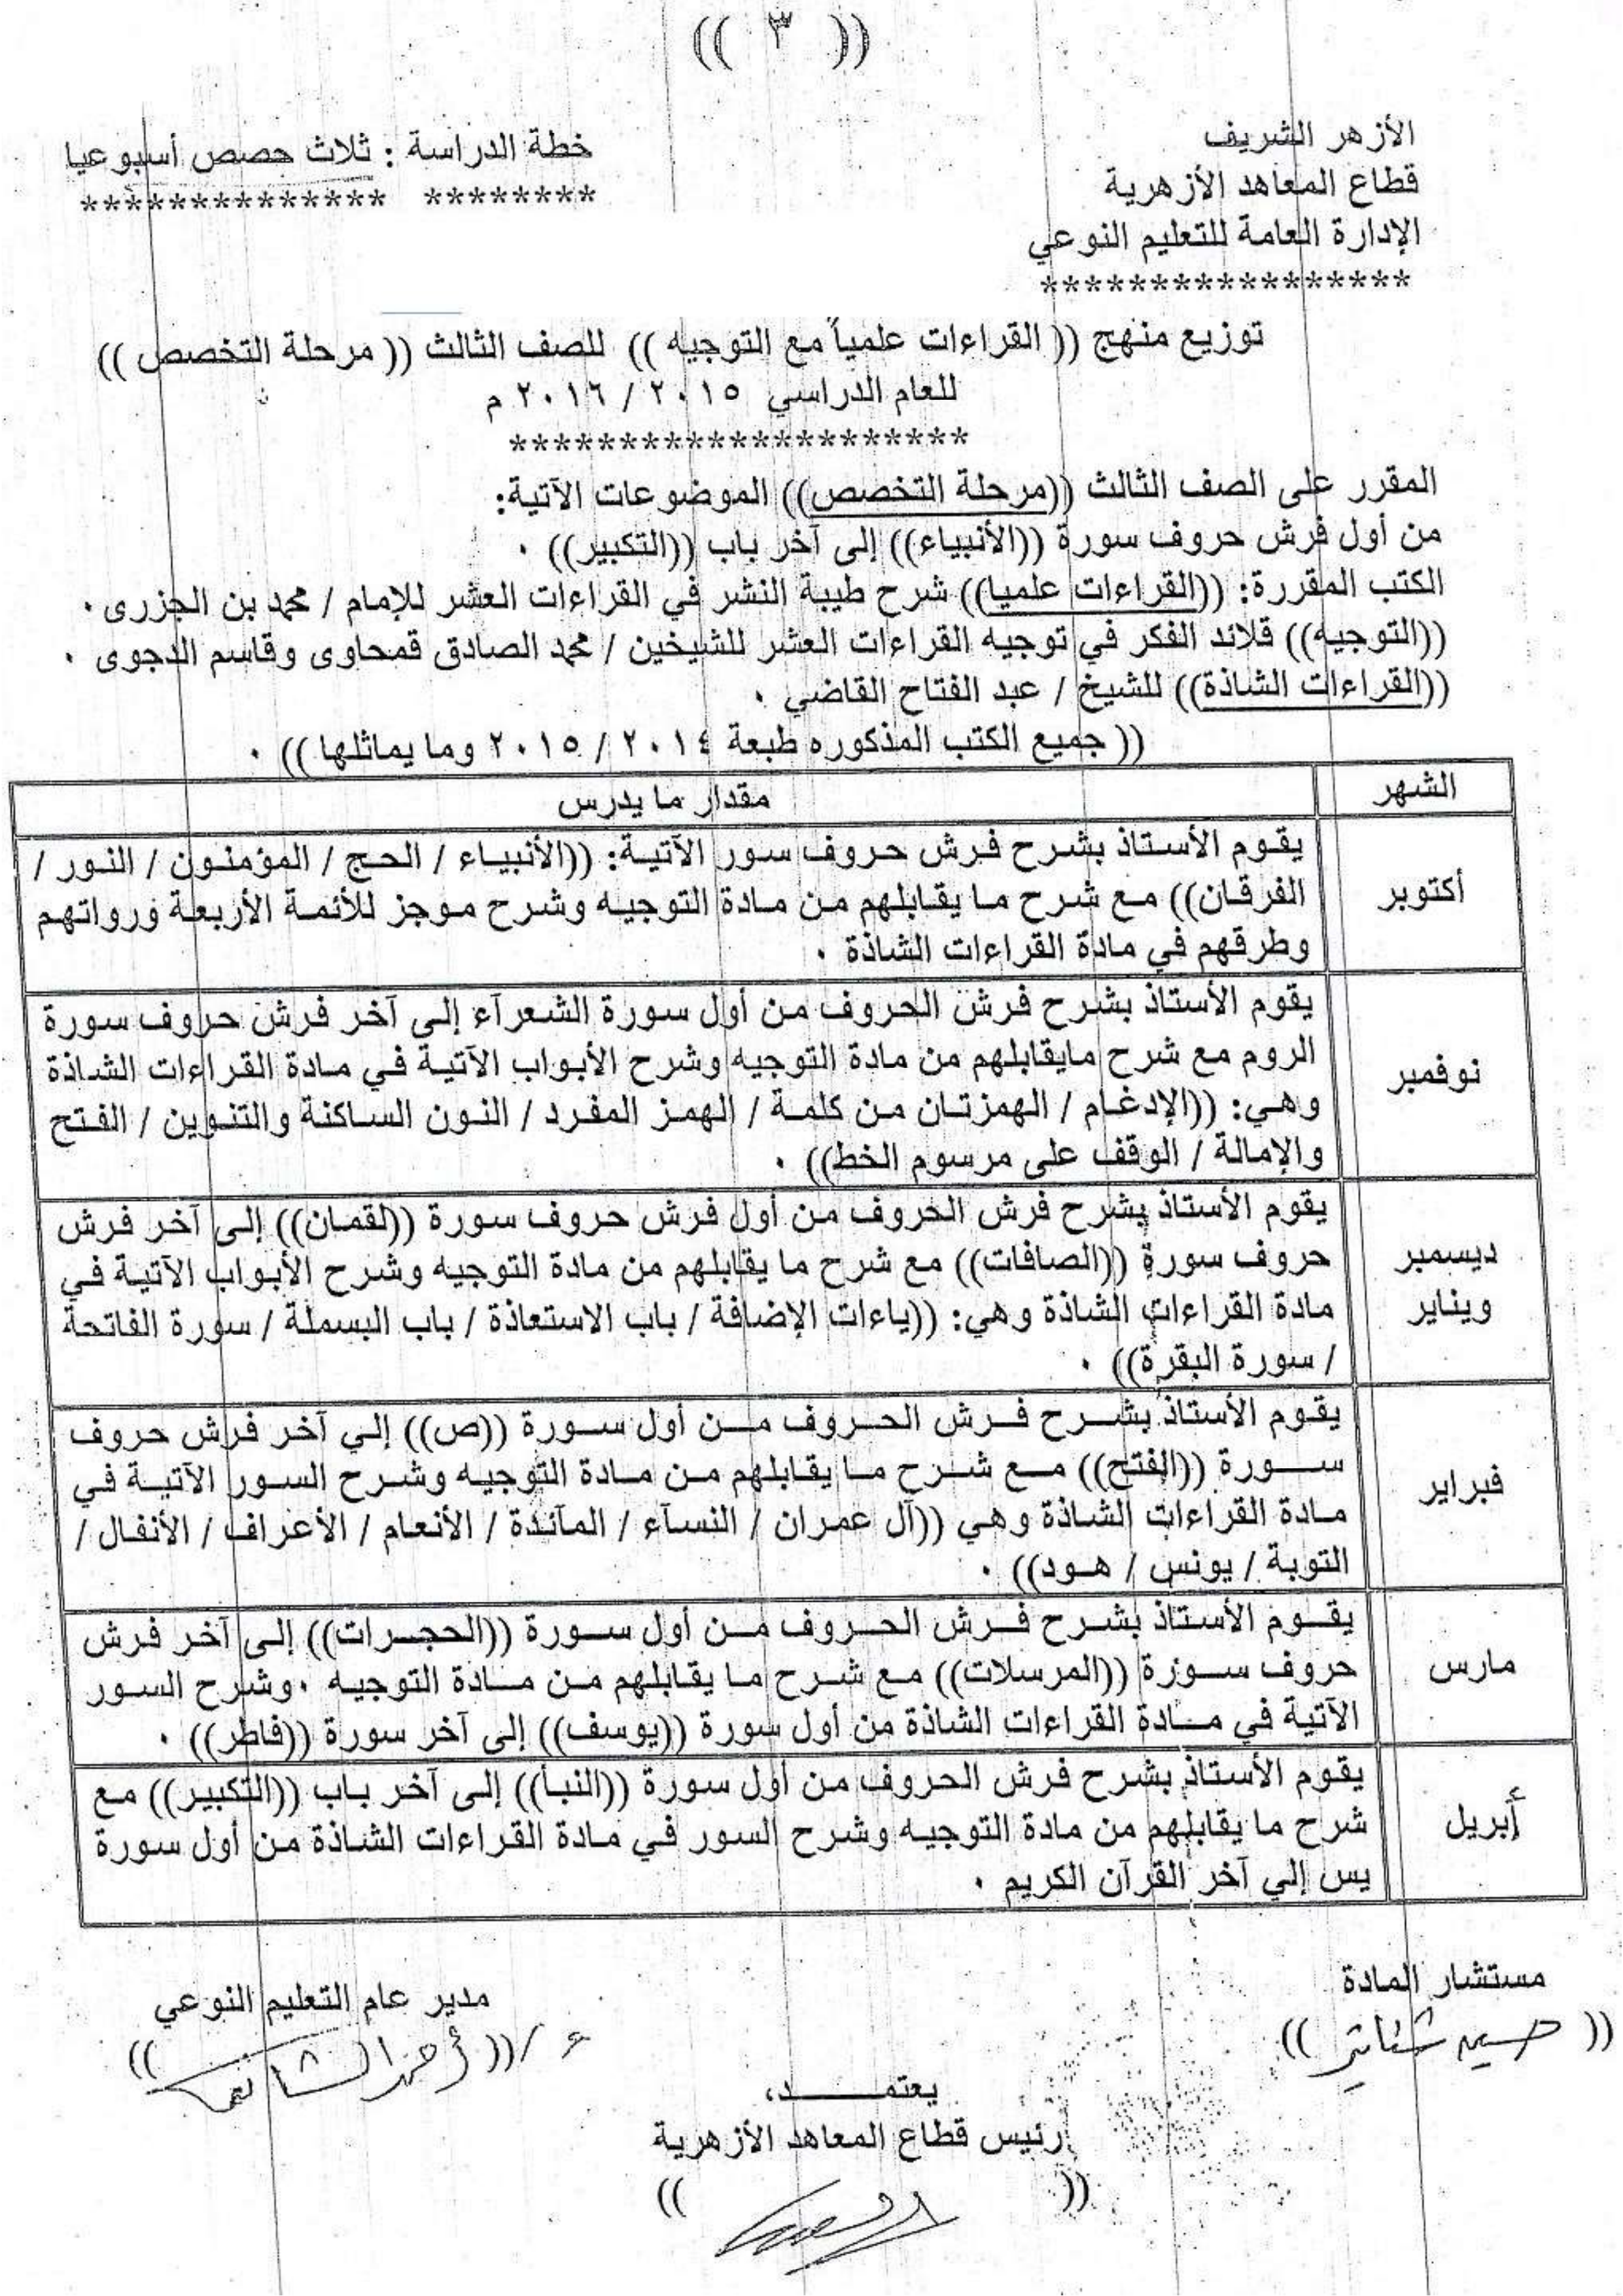 (( ٣ ))
الأزهر الشريف
قطاع المعاهد الأزهرية
الإدارة العامة للتعليم النوعي
*****************
خطة الدراسة : ثلاث حصص أسبوعيا
******** **************
توزيع منهج (( القراءات علمياً مع التوجيه )) للصف الثالث (( مرحلة التخصص ))
للعام الدراسي ٢٠١٥ / ٢٠١٦ م
*********************
المقرر على الصف الثالث ((مرحلة التخصص)) الموضوعات الآتية:
من أول فرش حروف سورة ((الأنبياء)) إلى آخر باب ((التكبير)) .
الكتب المقررة: ((القراءات علميا)) شرح طيبة النشر في القراءات العشر للإمام / محمد بن الجزرى .
((التوجيه)) قلائد الفكر في توجيه القراءات العشر للشيخين / محمد الصادق قمحاوى وقاسم الدجوى .
((القراءات الشاذة)) للشيخ / عبد الفتاح القاضي .
(( جميع الكتب المذكوره طبعة ٢٠١٤ / ٢٠١٥ وما يماثلها )) .
الشهر
مقدار ما يدرس
أكتوبر
يقوم الأستاذ بشرح فرش حروف سور الآتية: ((الأنبياء / الحج / المؤمنون / النور /
الفرقان)) مع شرح ما يقابلهم من مادة التوجيه وشرح موجز للأئمة الأربعة ورواتهم
وطرقهم في مادة القراءات الشاذة .
نوفمبر
يقوم الأستاذ بشرح فرش الحروف من أول سورة الشعرآء إلى آخر فرش حروف سورة
الروم مع شرح مايقابلهم من مادة التوجيه وشرح الأبواب الآتية في مادة القراءات الشاذة
وهي: ((الإدغام / الهمزتان من كلمة / الهمز المفرد / النون الساكنة والتنوين / الفتح
والإمالة / الوقف على مرسوم الخط)) .
ديسمبر
ويناير
يقوم الأستاذ بشرح فرش الحروف من أول فرش حروف سورة ((لقمان)) إلى آخر فرش
حروف سورة ((الصافات)) مع شرح ما يقابلهم من مادة التوجيه وشرح الأبواب الآتية في
مادة القراءات الشاذة وهي: ((ياءات الإضافة / باب الاستعاذة / باب البسملة / سورة الفاتحة
/ سورة البقرة)) .
فبراير
يقوم الأستاذ بشرح فرش الحروف من أول سورة ((ص)) إلي آخر فرش حروف
سورة ((الفتح)) مع شرح ما يقابلهم من مادة التوجيه وشرح السور الآتية في
مادة القراءات الشاذة وهي ((آل عمران / النسآء / المآئدة / الأنعام / الأعراف / الأنفال /
التوبة / يونس / هود)) .
مارس
يقوم الأستاذ بشرح فرش الحروف من أول سورة ((الحجرات)) إلى آخر فرش
حروف سورة ((المرسلات)) مع شرح ما يقابلهم من مادة التوجيه .وشرح السور
الآتية في مادة القراءات الشاذة من أول سورة ((يوسف)) إلى آخر سورة ((فاطر)) .
أبريل
يقوم الأستاذ بشرح فرش الحروف من أول سورة ((النبأ)) إلى آخر باب ((التكبير)) مع
شرح ما يقابلهم من مادة التوجيه وشرح السور في مادة القراءات الشاذة من أول سورة
يس إلي آخر القرآن الكريم .
مستشار المادة
(( حسين ))
مدير عام التعليم النوعي
((أحمد ))
يعتمــــد،
رئيس قطاع المعاهد الأزهرية
(( ))